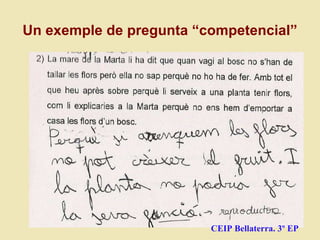 Un exemple de pregunta “competencial”
2) La mare de la Marta li ha dit que quan vagi al bosc no s'han de
tallar les flors però ella no sap perquè no ho ha de fer. Amb tot el
que heu après sobre perquè li serveix a una planta tenir flors,
com li explicaries a la Marta perquè no ens hem d'emportar a
casa les flors d'un bosc.
Perquè si arrenquem les flors
no pot créixer el gruit. I
la planta no podria fer
la seva funció. → reproductora.
CEIP Bellaterra. 3º EP